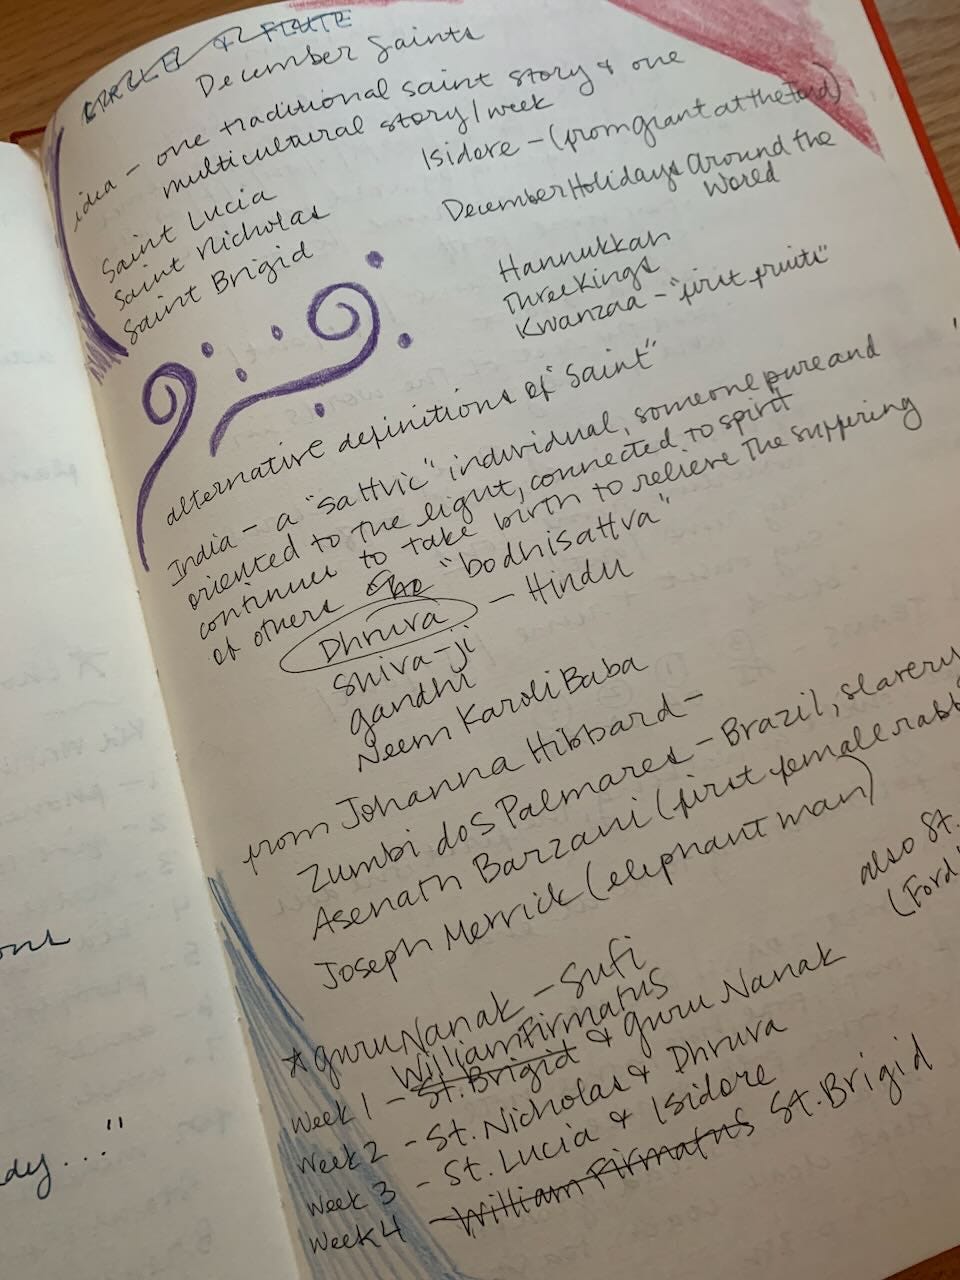 CIRCLE & FLUTE
December Saints
idea - one traditional saint story & one
multicultural story/week
Saint Lucia
Saint Nicholas
Saint Brigid
Isidore - (from giant at the Ford)
December Holidays around the
World
Hannukkah
Three Kings
Kwanzaa - "first fruits"
alternative definitions of "saint"
India - a "sattvic" individual, someone pure and
oriented to the light, connected to spirit
continues to take birth to relieve the suffering
of others "bodhisattva"
Dhruva - Hindu
Shiva-ji
gandhi
Neem Karoli Baba
from Johanna Hibbard -
Zumbi dos Palmares - Brazil, slavery
Asenath Barzani (first female rabb
Joseph Merrick (elephant man)
also St.
(Ford
*guru Nanak - Sufi
William Firmatus
Week 1 - St. Brigid & guru Nanak
Week 2 - St. Nicholas & Dhruva
Week 3 - St. Lucia & Isidore
Week 4 - William Firmatus St. Brigid
dy..."